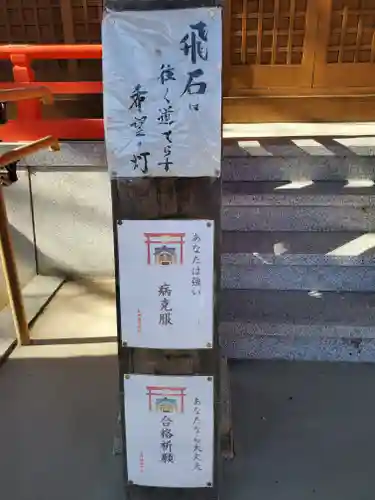 飛石は
往く道てらす
希望の灯
あなたは強い
病克服
あなたなら大丈夫
合格祈願